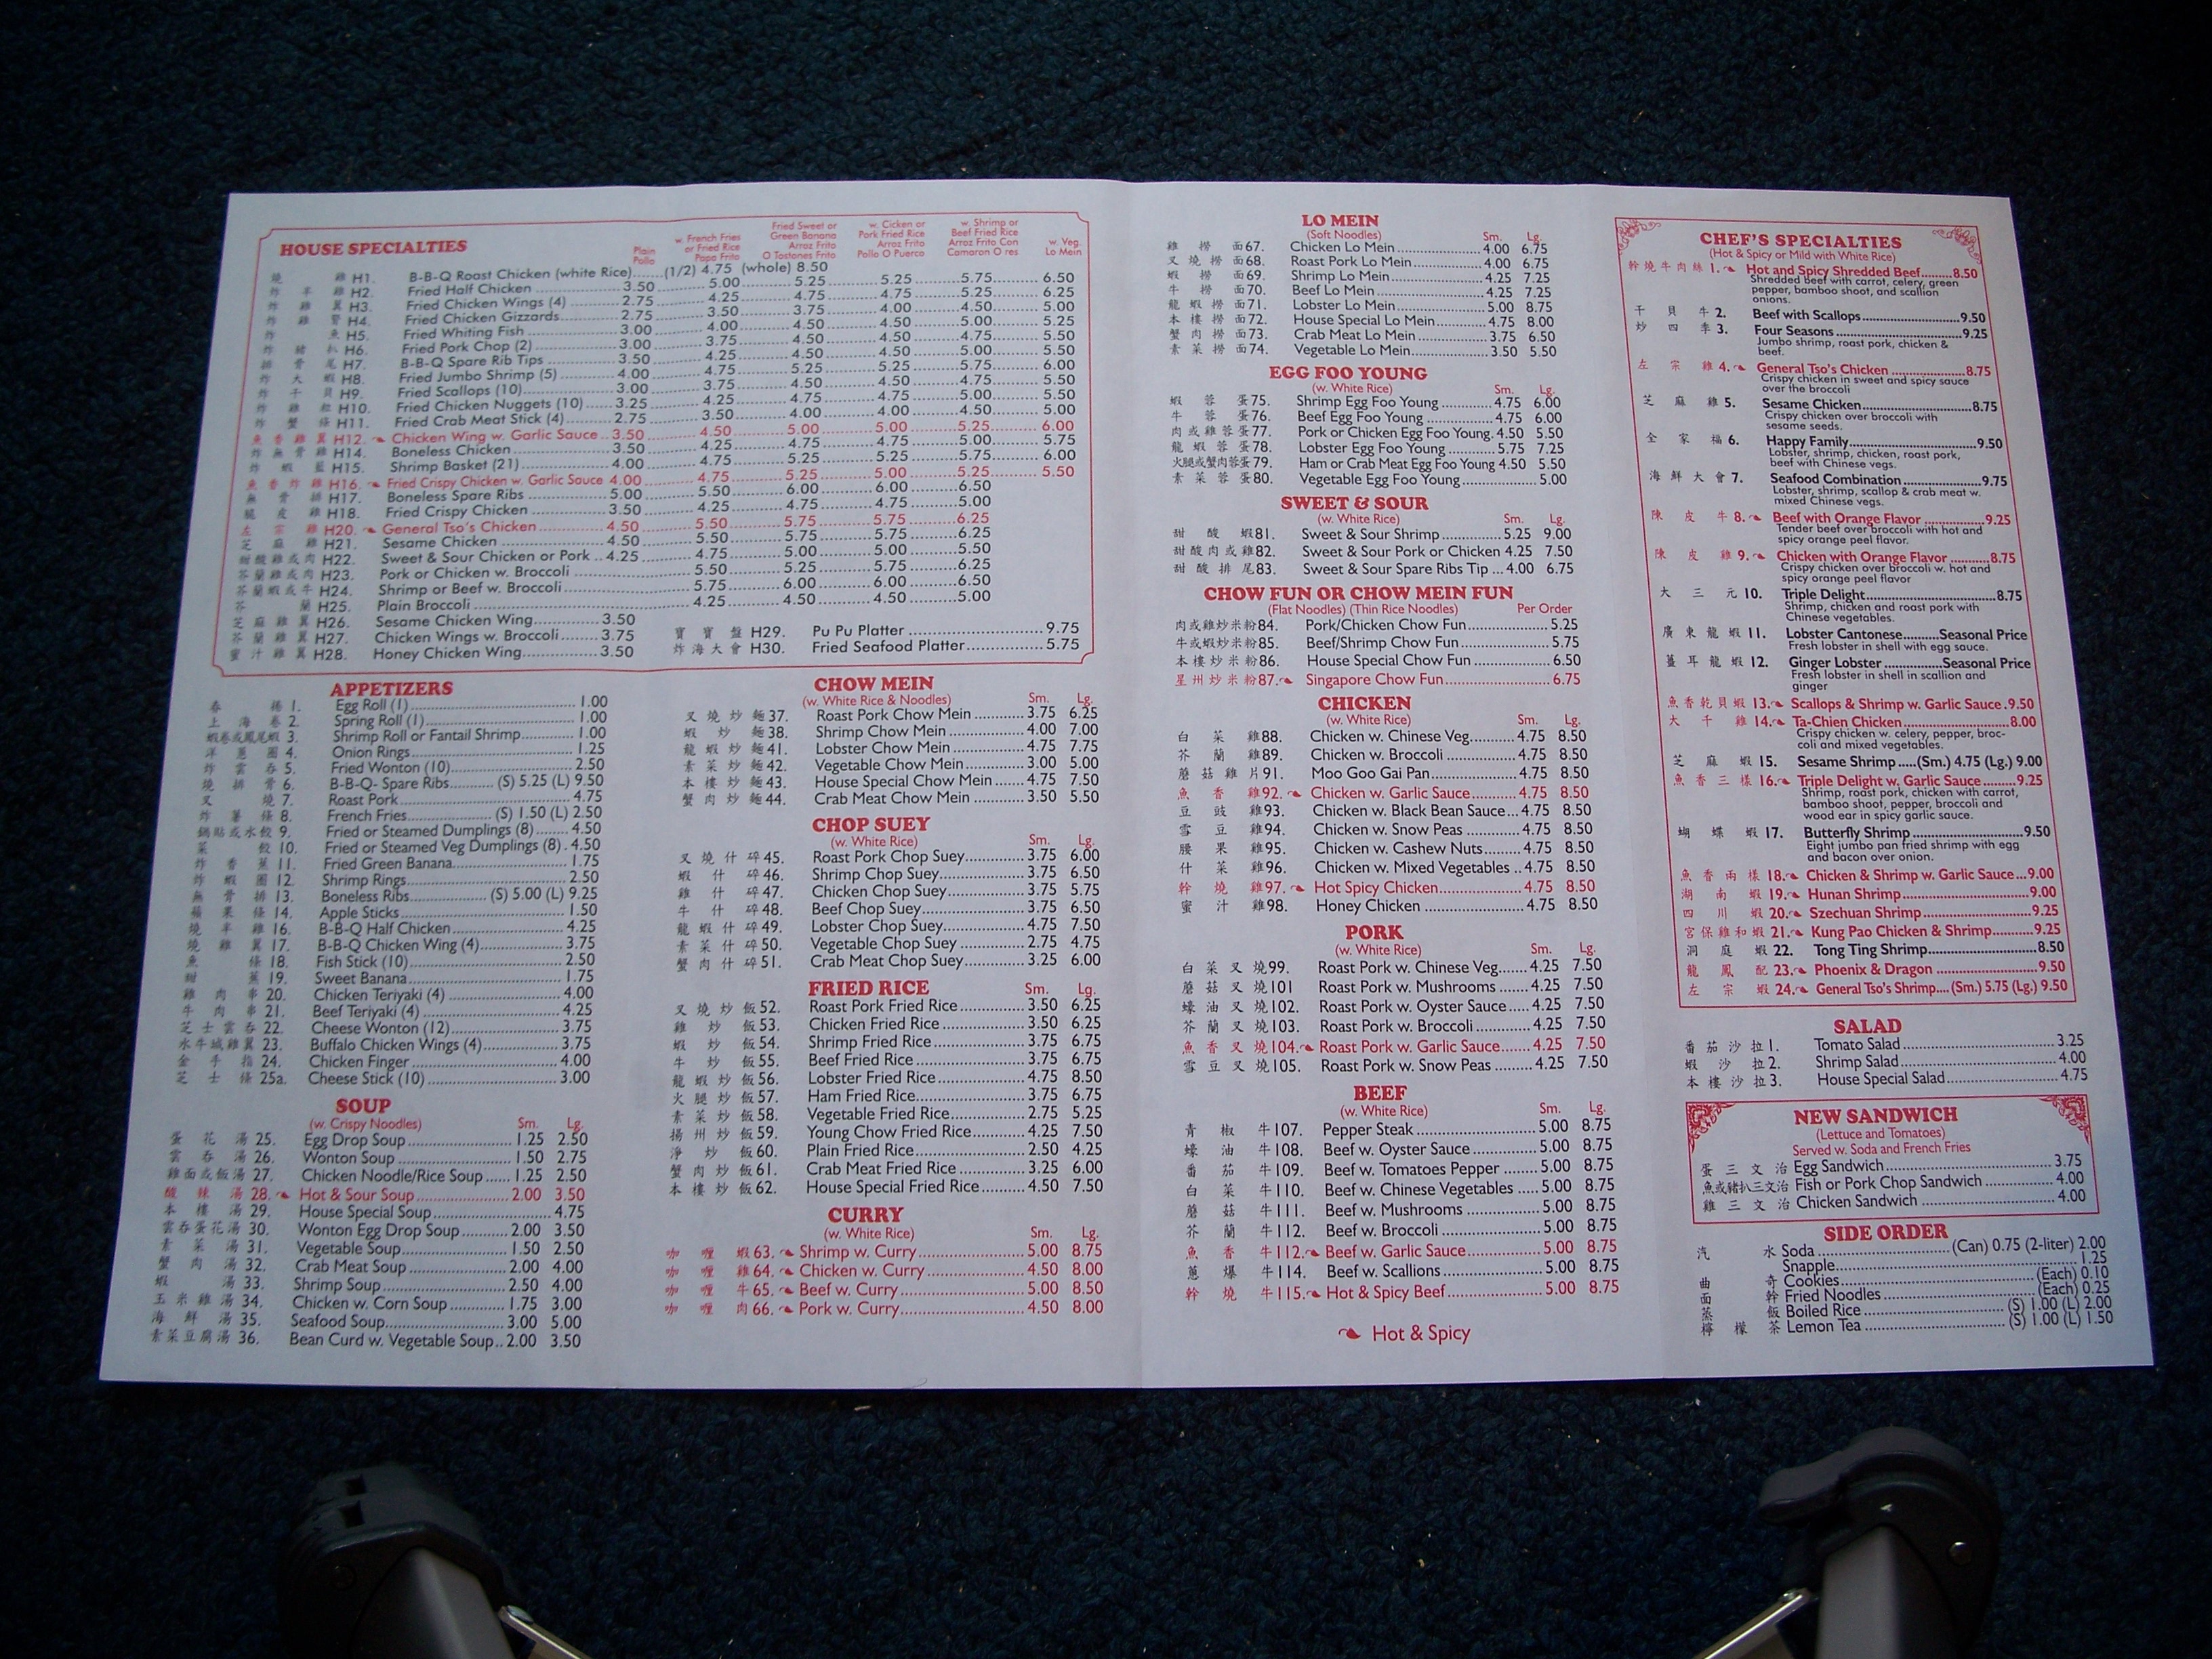 HOUSE SPECIALTIES
Plain Pollo
w. French Fries or Fried Rice Papa Frito
Fried Sweet or Green Banana Arroz Frito O Tostones Frito
w. Cicken or Pork Fried Rice Arroz Frito Pollo O Puerco
w. Shrimp or Beef Fried Rice Arroz Frito Con Camaron O res
w. Veg. Lo Mein
燒 雞 H1. B-B-Q Roast Chicken (white Rice)......(1/2) 4.75 (whole) 8.50
炸 半 雞 H2. Fried Half Chicken 3.50 5.00 5.25 5.25 5.75 6.50
炸 雞 翼 H3. Fried Chicken Wings (4) 2.75 4.25 4.75 4.75 5.25 6.25
炸 雞 腎 H4. Fried Chicken Gizzards 2.75 3.50 3.75 4.00 4.50 5.00
炸 魚 H5. Fried Whiting Fish 3.00 4.00 4.50 4.50 5.00 5.25
炸 豬 扒 H6. Fried Pork Chop (2) 3.00 3.75 4.50 4.50 5.00 5.50
排 骨 尾 H7. B-B-Q Spare Rib Tips 3.50 4.25 4.50 4.50 5.00 5.50
炸 大 蝦 H8. Fried Jumbo Shrimp (5) 4.00 4.75 5.25 5.25 5.75 6.00
炸 干 貝 H9. Fried Scallops (10) 3.00 3.75 4.50 4.50 4.75 5.50
炸 雞 粒 H10. Fried Chicken Nuggets (10) 3.25 4.25 4.50 4.50 4.50 5.50
炸 蟹 條 H11. Fried Crab Meat Stick (4) 2.75 3.50 4.00 4.00 4.50 5.00
魚 香 雞 翼 H12. Chicken Wing w. Garlic Sauce 3.50 4.50 5.00 5.00 5.25 6.00
炸 無 骨 雞 H14. Boneless Chicken 3.50 4.25 4.75 4.75 5.00 5.75
炸 蝦 籃 H15. Shrimp Basket (21) 4.00 4.75 5.25 5.25 5.25 6.00
魚 香 炸 雞 H16. Fried Crispy Chicken w. Garlic Sauce 4.00 4.75 5.25 5.00 5.25 5.50
無 骨 排 H17. Boneless Spare Ribs 5.00 5.50 6.00 6.00 6.50
脆 皮 雞 H18. Fried Crispy Chicken 3.50 4.25 4.75 4.75 5.00
左 宗 雞 H20. General Tso's Chicken 4.50 5.50 5.75 5.75 6.25
芝 麻 雞 H21. Sesame Chicken 4.50 5.50 5.75 5.75 6.25
甜酸雞或肉 H22. Sweet & Sour Chicken or Pork 4.25 4.75 5.00 5.00 5.50
芥蘭雞或肉 H23. Pork or Chicken w. Broccoli 5.50 5.25 5.25 6.25
芥蘭蝦或牛 H24. Shrimp or Beef w. Broccoli 5.75 6.00 6.00 6.50
芥 蘭 H25. Plain Broccoli 4.25 4.50 4.50 5.00
芝 麻 雞 翼 H26. Sesame Chicken Wing 3.50
芥 蘭 雞 翼 H27. Chicken Wings w. Broccoli 3.75
蜜 汁 雞 翼 H28. Honey Chicken Wing 3.50
寶 寶 盤 H29. Pu Pu Platter 9.75
炸 海 大 會 H30. Fried Seafood Platter 5.75
APPETIZERS
春 捲 1. Egg Roll (1) 1.00
上 海 卷 2. Spring Roll (1) 1.00
蝦卷或鳳尾蝦 3. Shrimp Roll or Fantail Shrimp 1.00
洋 蔥 圈 4. Onion Rings 1.25
炸 雲 吞 5. Fried Wonton (10) 2.50
燒 排 骨 6. B-B-Q- Spare Ribs (S) 5.25 (L) 9.50
叉 燒 7. Roast Pork 4.75
炸 薯 條 8. French Fries (S) 1.50 (L) 2.50
鍋貼或水餃 9. Fried or Steamed Dumplings (8) 4.50
菜 餃 10. Fried or Steamed Veg Dumplings (8) 4.50
炸 香 蕉 11. Fried Green Banana 1.75
炸 蝦 圈 12. Shrimp Rings 2.50
無 骨 排 13. Boneless Ribs (S) 5.00 (L) 9.25
蘋 果 條 14. Apple Sticks 1.50
燒 半 雞 16. B-B-Q Half Chicken 4.25
燒 雞 翼 17. B-B-Q Chicken Wing (4) 3.75
魚 條 18. Fish Stick (10) 2.50
甜 蕉 19. Sweet Banana 1.75
雞 肉 串 20. Chicken Teriyaki (4) 4.00
牛 肉 串 21. Beef Teriyaki (4) 4.25
芝 士 雲 吞 22. Cheese Wonton (12) 3.75
水牛城雞翼 23. Buffalo Chicken Wings (4) 3.75
金 手 指 24. Chicken Finger 4.00
芝 士 條 25a. Cheese Stick (10) 3.00
SOUP
(w. Crispy Noodles) Sm. Lg.
蛋 花 湯 25. Egg Drop Soup 1.25 2.50
雲 吞 湯 26. Wonton Soup 1.50 2.75
雞面或飯湯 27. Chicken Noodle/Rice Soup 1.25 2.50
酸 辣 湯 28. Hot & Sour Soup 2.00 3.50
本 樓 湯 29. House Special Soup 4.75
雲吞蛋花湯 30. Wonton Egg Drop Soup 2.00 3.50
素 菜 湯 31. Vegetable Soup 1.50 2.50
蟹 肉 湯 32. Crab Meat Soup 2.00 4.00
蝦 湯 33. Shrimp Soup 2.50 4.00
玉 米 雞 湯 34. Chicken w. Corn Soup 1.75 3.00
海 鮮 湯 35. Seafood Soup 3.00 5.00
素菜豆腐湯 36. Bean Curd w. Vegetable Soup 2.00 3.50
CHOW MEIN
(w. White Rice & Noodles) Sm. Lg.
叉 燒 炒 麵 37. Roast Pork Chow Mein 3.75 6.25
蝦 炒 麵 38. Shrimp Chow Mein 4.00 7.00
龍 蝦 炒 麵 41. Lobster Chow Mein 4.75 7.75
素 菜 炒 麵 42. Vegetable Chow Mein 3.00 5.00
本 樓 炒 麵 43. House Special Chow Mein 4.75 7.50
蟹 肉 炒 麵 44. Crab Meat Chow Mein 3.50 5.50
CHOP SUEY
(w. White Rice) Sm. Lg.
叉 燒 什 碎 45. Roast Pork Chop Suey 3.75 6.00
蝦 什 碎 46. Shrimp Chop Suey 3.75 6.50
雞 什 碎 47. Chicken Chop Suey 3.75 5.75
牛 什 碎 48. Beef Chop Suey 3.75 6.50
龍 蝦 什 碎 49. Lobster Chop Suey 4.75 7.50
素 菜 什 碎 50. Vegetable Chop Suey 2.75 4.75
蟹 肉 什 碎 51. Crab Meat Chop Suey 3.25 6.00
FRIED RICE Sm. Lg.
叉 燒 炒 飯 52. Roast Pork Fried Rice 3.50 6.25
雞 炒 飯 53. Chicken Fried Rice 3.50 6.25
蝦 炒 飯 54. Shrimp Fried Rice 3.75 6.75
牛 炒 飯 55. Beef Fried Rice 3.75 6.75
龍 蝦 炒 飯 56. Lobster Fried Rice 4.75 8.50
火 腿 炒 飯 57. Ham Fried Rice 3.75 6.75
素 菜 炒 飯 58. Vegetable Fried Rice 2.75 5.25
揚 州 炒 飯 59. Young Chow Fried Rice 4.25 7.50
淨 炒 飯 60. Plain Fried Rice 2.50 4.25
蟹 肉 炒 飯 61. Crab Meat Fried Rice 3.25 6.00
本 樓 炒 飯 62. House Special Fried Rice 4.50 7.50
CURRY
(w. White Rice) Sm. Lg.
咖 喱 蝦 63. Shrimp w. Curry 5.00 8.75
咖 喱 雞 64. Chicken w. Curry 4.50 8.00
咖 喱 牛 65. Beef w. Curry 5.00 8.50
咖 喱 肉 66. Pork w. Curry 4.50 8.00
LO MEIN
(Soft Noodles) Sm. Lg.
雞 撈 面 67. Chicken Lo Mein 4.00 6.75
叉 燒 撈 面 68. Roast Pork Lo Mein 4.00 6.75
蝦 撈 面 69. Shrimp Lo Mein 4.25 7.25
牛 撈 面 70. Beef Lo Mein 4.25 7.25
龍 蝦 撈 面 71. Lobster Lo Mein 5.00 8.75
本 樓 撈 面 72. House Special Lo Mein 4.75 8.00
蟹 肉 撈 面 73. Crab Meat Lo Mein 3.75 6.50
素 菜 撈 面 74. Vegetable Lo Mein 3.50 5.50
EGG FOO YOUNG
(w. White Rice) Sm. Lg.
蝦 蓉 蛋 75. Shrimp Egg Foo Young 4.75 6.00
牛 蓉 蛋 76. Beef Egg Foo Young 4.75 6.00
肉 或 雞 蓉 蛋 77. Pork or Chicken Egg Foo Young. 4.50 5.50
龍 蝦 蓉 蛋 78. Lobster Egg Foo Young 5.75 7.25
火腿或蟹肉蓉蛋 79. Ham or Crab Meat Egg Foo Young 4.50 5.50
素 菜 蓉 蛋 80. Vegetable Egg Foo Young 5.00
SWEET & SOUR
(w. White Rice) Sm. Lg.
甜 酸 蝦 81. Sweet & Sour Shrimp 5.25 9.00
甜 酸 肉 或 雞 82. Sweet & Sour Pork or Chicken 4.25 7.50
甜 酸 排 尾 83. Sweet & Sour Spare Ribs Tip 4.00 6.75
CHOW FUN OR CHOW MEIN FUN
(Flat Noodles) (Thin Rice Noodles) Per Order
肉或雞炒米粉 84. Pork/Chicken Chow Fun 5.25
牛或蝦炒米粉 85. Beef/Shrimp Chow Fun 5.75
本 樓 炒 米 粉 86. House Special Chow Fun 6.50
星 州 炒 米 粉 87. Singapore Chow Fun 6.75
CHICKEN
(w. White Rice) Sm. Lg.
白 菜 雞 88. Chicken w. Chinese Veg. 4.75 8.50
芥 蘭 雞 89. Chicken w. Broccoli 4.75 8.50
蘑 菇 雞 片 91. Moo Goo Gai Pan 4.75 8.50
魚 香 雞 92. Chicken w. Garlic Sauce 4.75 8.50
豆 豉 雞 93. Chicken w. Black Bean Sauce 4.75 8.50
雪 豆 雞 94. Chicken w. Snow Peas 4.75 8.50
腰 果 雞 95. Chicken w. Cashew Nuts 4.75 8.50
什 菜 雞 96. Chicken w. Mixed Vegetables 4.75 8.50
幹 燒 雞 97. Hot Spicy Chicken 4.75 8.50
蜜 汁 雞 98. Honey Chicken 4.75 8.50
PORK
(w. White Rice) Sm. Lg.
白 菜 叉 燒 99. Roast Pork w. Chinese Veg. 4.25 7.50
蘑 菇 叉 燒 101 Roast Pork w. Mushrooms 4.25 7.50
蠔 油 叉 燒 102. Roast Pork w. Oyster Sauce 4.25 7.50
芥 蘭 叉 燒 103. Roast Pork w. Broccoli 4.25 7.50
魚 香 叉 燒 104. Roast Pork w. Garlic Sauce 4.25 7.50
雪 豆 叉 燒 105. Roast Pork w. Snow Peas 4.25 7.50
BEEF
(w. White Rice) Sm. Lg.
青 椒 牛 107. Pepper Steak 5.00 8.75
蠔 油 牛 108. Beef w. Oyster Sauce 5.00 8.75
番 茄 牛 109. Beef w. Tomatoes Pepper 5.00 8.75
白 菜 牛 110. Beef w. Chinese Vegetables 5.00 8.75
蘑 菇 牛 111. Beef w. Mushrooms 5.00 8.75
芥 蘭 牛 112. Beef w. Broccoli 5.00 8.75
魚 香 牛 112. Beef w. Garlic Sauce 5.00 8.75
蔥 爆 牛 114. Beef w. Scallions 5.00 8.75
幹 燒 牛 115. Hot & Spicy Beef 5.00 8.75
Hot & Spicy
CHEF'S SPECIALTIES
(Hot & Spicy or Mild with White Rice)
幹 燒 牛 肉 絲 1. Hot and Spicy Shredded Beef 8.50
Shredded beef with carrot, celery, green
pepper, bamboo shoot, and scallion
onions.
干 貝 牛 2. Beef with Scallops 9.50
炒 四 季 3. Four Seasons 9.25
Jumbo shrimp, roast pork, chicken &
beef.
左 宗 雞 4. General Tso's Chicken 8.75
Crispy chicken in sweet and spicy sauce
over the broccoli
芝 麻 雞 5. Sesame Chicken 8.75
Crispy chicken over broccoli with
sesame seeds.
全 家 福 6. Happy Family 9.50
Lobster, shrimp, chicken, roast pork,
beef with Chinese vegs.
海 鮮 大 會 7. Seafood Combination 9.75
Lobster, shrimp, scallop & crab meat w.
mixed Chinese vegs.
陳 皮 牛 8. Beef with Orange Flavor 9.25
Tender beef over broccoli with hot and
spicy orange peel flavor.
陳 皮 雞 9. Chicken with Orange Flavor 8.75
Crispy chicken over broccoli w. hot and
spicy orange peel flavor
大 三 元 10. Triple Delight 8.75
Shrimp, chicken and roast pork with
Chinese vegetables.
廣 東 龍 蝦 11. Lobster Cantonese Seasonal Price
Fresh lobster in shell with egg sauce.
薑 耳 龍 蝦 12. Ginger Lobster Seasonal Price
Fresh lobster in shell in scallion and
ginger
魚 香 乾 貝 蝦 13. Scallops & Shrimp w. Garlic Sauce 9.50
大 千 雞 14. Ta-Chien Chicken 8.00
Crispy chicken w. celery, pepper, broc-
coli and mixed vegetables.
芝 麻 蝦 15. Sesame Shrimp (Sm.) 4.75 (Lg.) 9.00
魚 香 三 樣 16. Triple Delight w. Garlic Sauce 9.25
Shrimp, roast pork, chicken with carrot,
bamboo shoot, pepper, broccoli and
wood ear in spicy garlic sauce.
蝴 蝶 蝦 17. Butterfly Shrimp 9.50
Eight jumbo pan fried shrimp with egg
and bacon over onion.
魚 香 兩 樣 18. Chicken & Shrimp w. Garlic Sauce 9.00
湖 南 蝦 19. Hunan Shrimp 9.00
四 川 蝦 20. Szechuan Shrimp 9.25
宮 保 雞 和 蝦 21. Kung Pao Chicken & Shrimp 9.25
洞 庭 蝦 22. Tong Ting Shrimp 8.50
龍 鳳 配 23. Phoenix & Dragon 9.50
左 宗 蝦 24. General Tso's Shrimp (Sm.) 5.75 (Lg.) 9.50
SALAD
番 茄 沙 拉 1. Tomato Salad 3.25
蝦 沙 拉 2. Shrimp Salad 4.00
本 樓 沙 拉 3. House Special Salad 4.75
NEW SANDWICH
(Lettuce and Tomatoes)
Served w. Soda and French Fries
蛋 三 文 治 Egg Sandwich 3.75
魚或豬扒三文治 Fish or Pork Chop Sandwich 4.00
雞 三 文 治 Chicken Sandwich 4.00
SIDE ORDER
汽 水 Soda (Can) 0.75 (2-liter) 2.00
Snapple 1.25
曲 奇 Cookies (Each) 0.10
面 幹 Fried Noodles (Each) 0.25
蒸 飯 Boiled Rice (S) 1.00 (L) 2.00
檸 檬 茶 Lemon Tea (S) 1.00 (L) 1.50